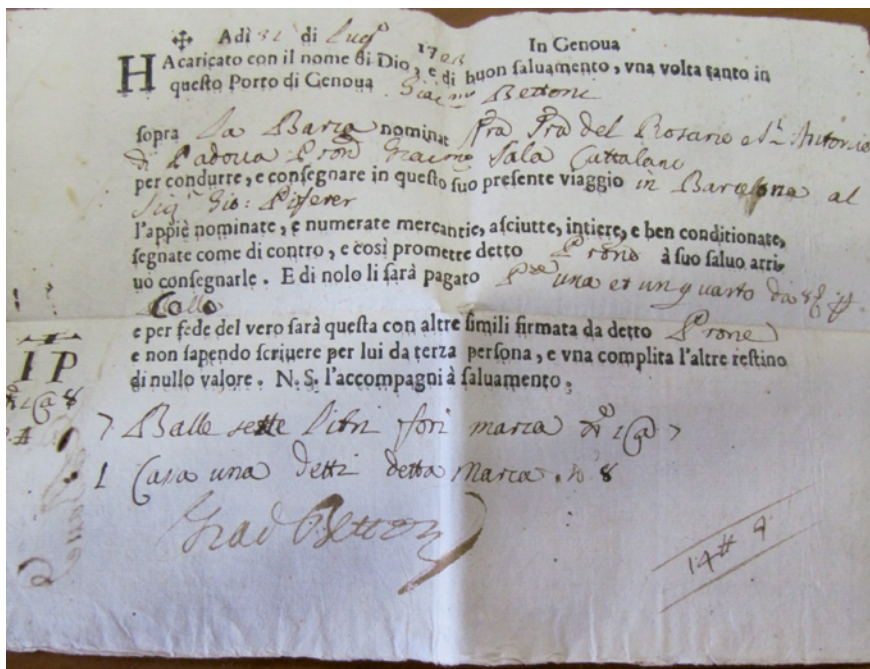 ✣ Adì 31 di Lug.º 17 In Genoua
HA caricato con il nome di Dio, e di buon saluamento, vna volta tanto in
questo Porto di Genoua Giacmo Bettoni
sopra La Barca nominat del Rosario e S.t Antonio
di Padoua Pron Giacmo Sala Cattalano
per condurre, e consegnare in questo suo presente viaggio in Barcelona al
Sigr Gio: Piferer
l'appiè nominate, e numerate mercantie, asciutte, intiere, e ben conditionate,
segnate come di contro, e così promette detto Prone à suo saluo arri-
uo consegnarle. E di nolo li sarà pagato una et un quarto da
e per fede del vero sarà questa con altre simili firmata da detto Prone
e non sapendo scriuere per lui da terza persona, e vna complita l'altre restino
di nullo valore. N. S. l'accompagni à saluamento.
IP
7 Balle sette libri marca 1@7
1 Casa una detti detta Marca. 8
14 # 9